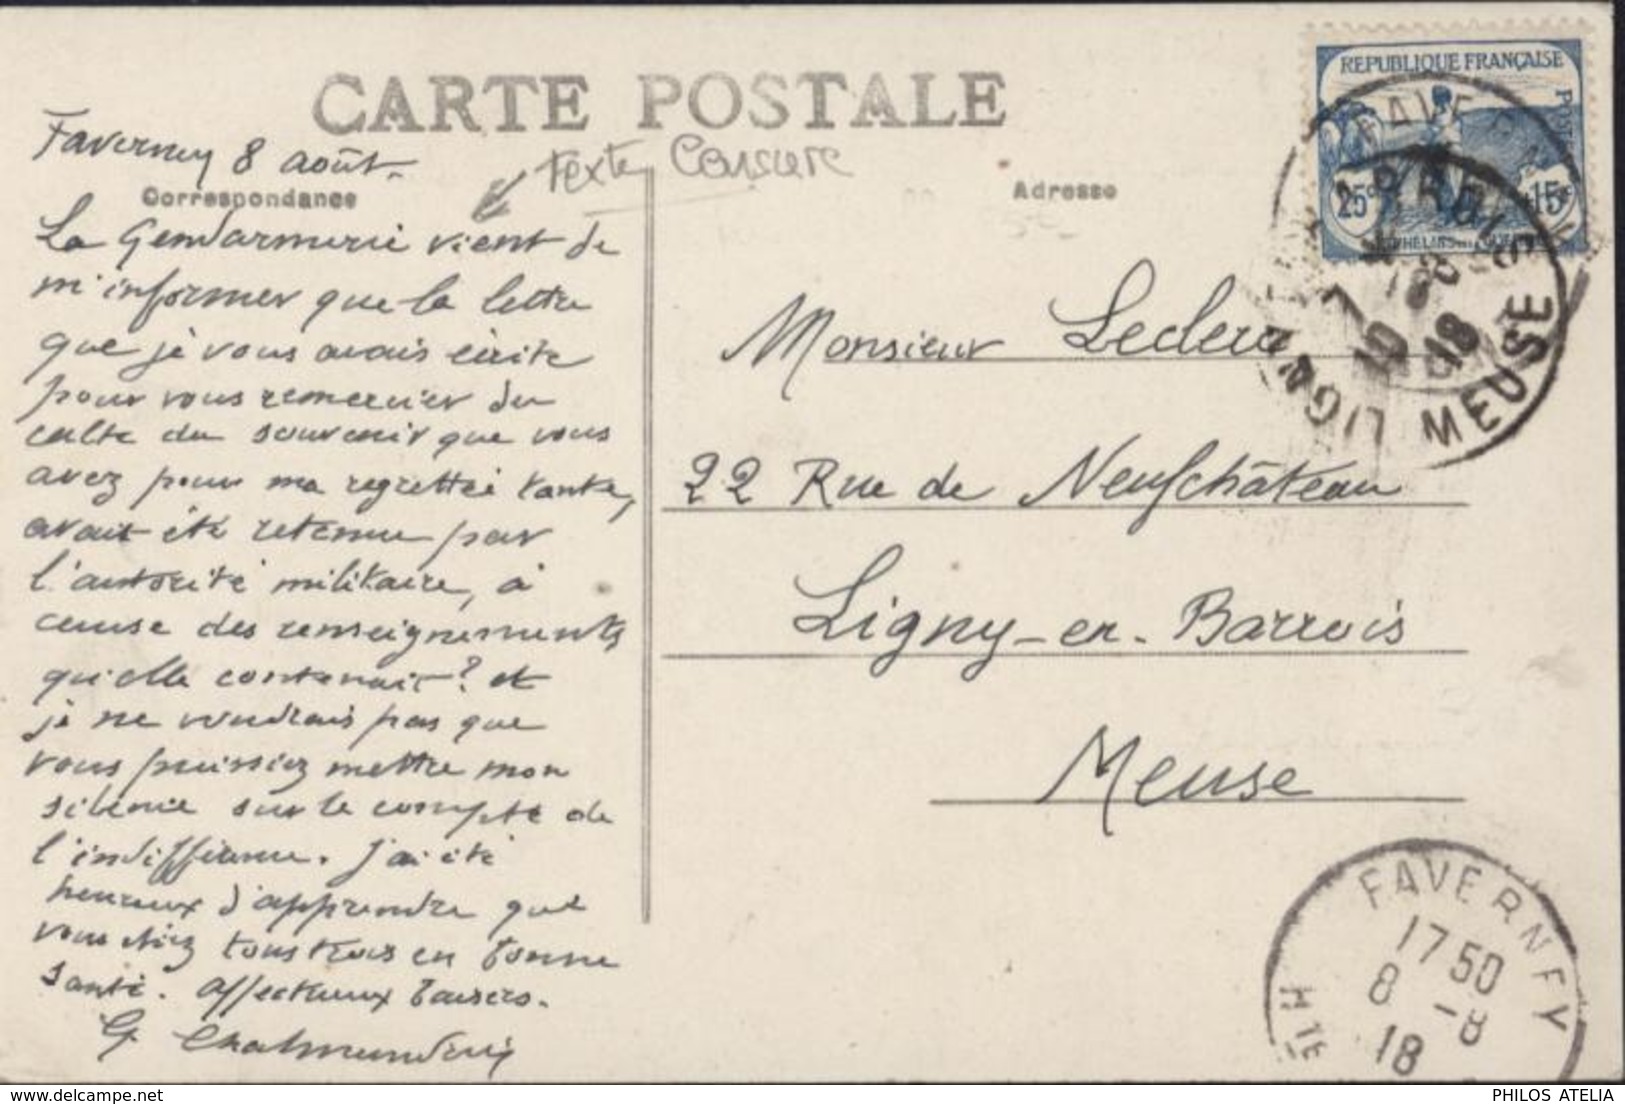 CARTE POSTALE
Faverney 8 août.
Texte Censure
Correspondance
Adresse
La Gendarmerie vient de
m'informer que la lettre
que je vous avais écrite
pour vous remercier du
culte du souvenir que vous
avez pour ma regrettée tante,
avait été retenue par
l'autorité militaire, à
cause des renseignements
qu'elle contenait? et
je ne voudrais pas que
vous puissiez mettre mon
silence sur le compte de
l'indifférence. J'ai été
heureux d'apprendre que
vous étiez tous trois en bonne
santé. Affectueux baisers.
G.
REPUBLIQUE FRANÇAISE
POSTES
25c +15c
ORPHELINS DE LA GUERRE
FAVERNEY
LIGNY EN BARROIS
10 18
MEUSE
Monsieur Leclerc
22 Rue de Neufchâteau
Ligny-en-Barrois
Meuse
FAVERNEY
17 50
8 -8
18
HTE
PHILOS ATELIA